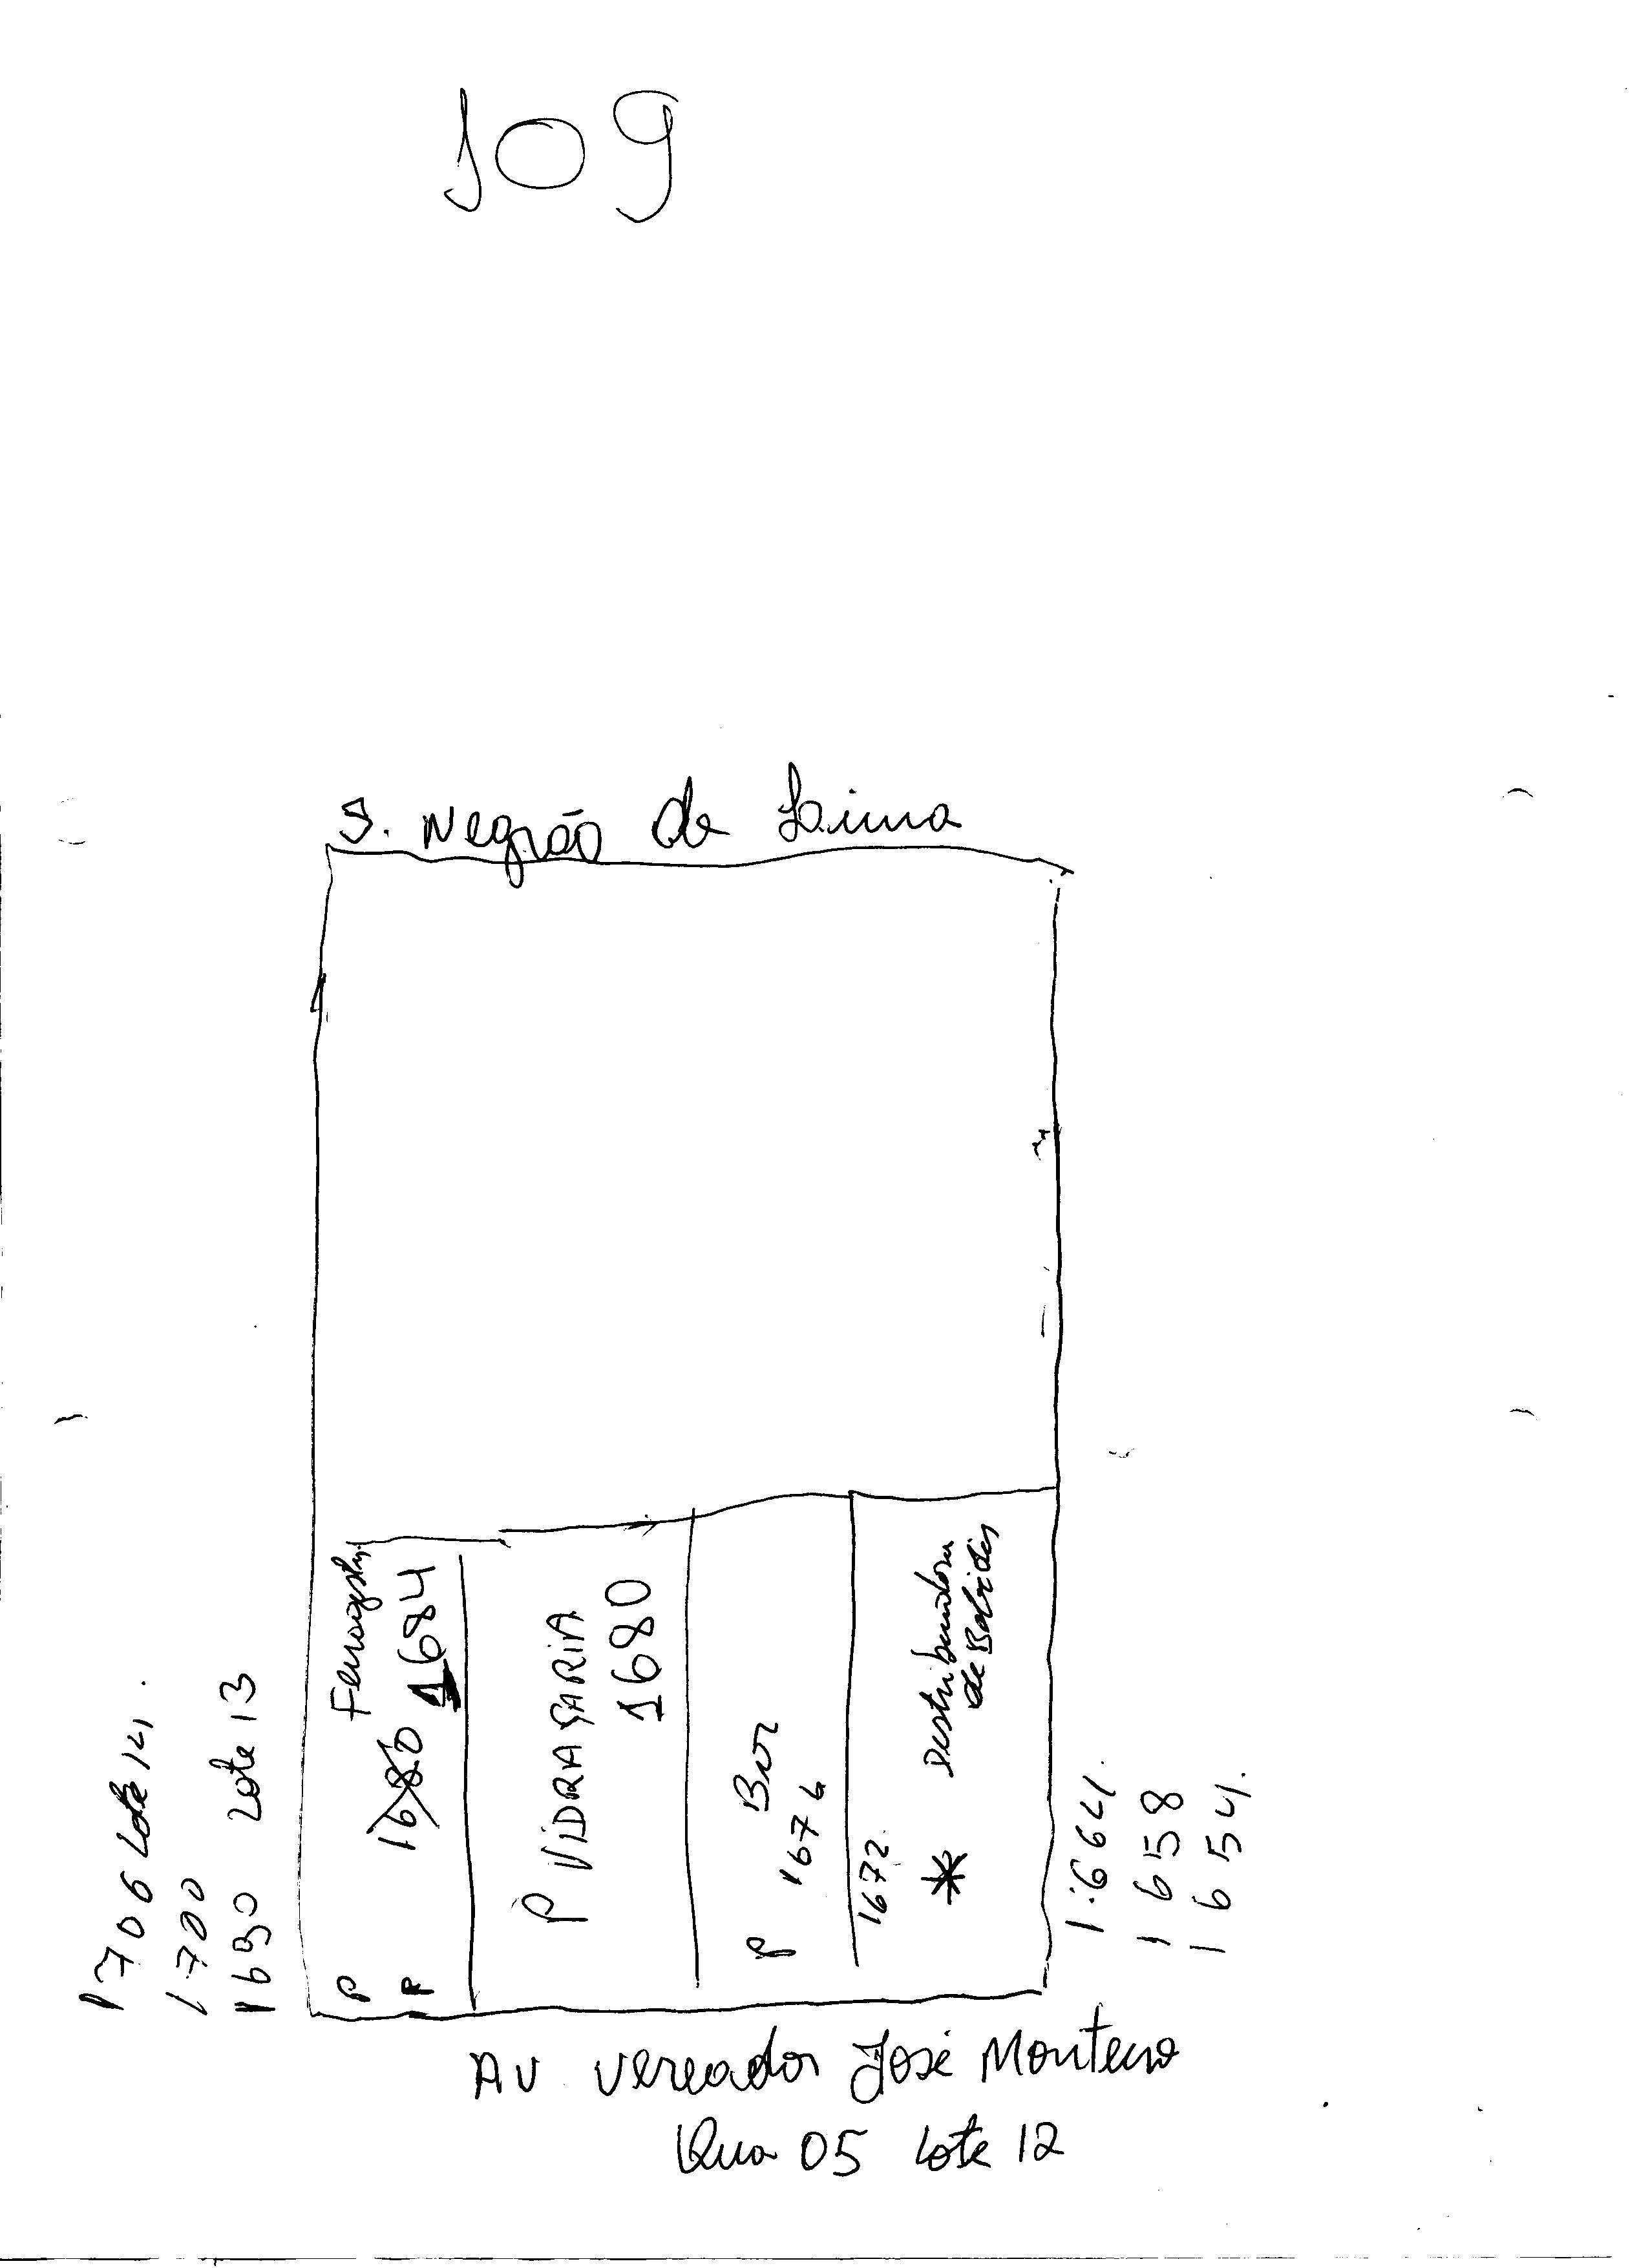 109
S. Negrão de Lima
1706 Lote 14.
1700
1690 Lote 13
P
P
1680 1684
P VIDRAÇARIA
1680
P Bar
1676
1672
* Distribuidora
de Bebidas
1.664.
1658
1654.
AV Vereador José Monteiro
Qua 05 Lote 12